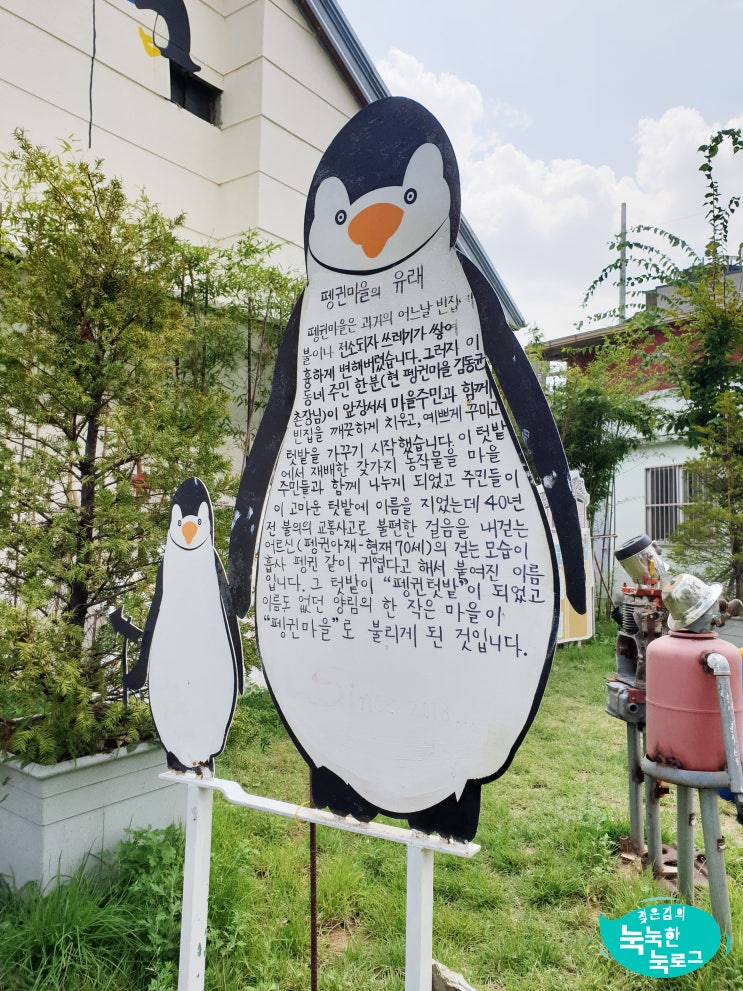 펭귄마을의 유래
펭귄마을은 과거의 어느날 빈집이
불이나 전소되자 쓰레기가 쌓여
흉하게 변해버렸습니다. 그러자 이
동네 주민 한 분(현 펭귄마을 김동균
촌장님)이 앞장서서 마을주민과 함께
빈집을 깨끗하게 치우고, 예쁘게 꾸미고
텃밭을 가꾸기 시작했습니다. 이 텃밭
에서 재배한 갖가지 농작물을 마을
주민들과 함께 나누게 되었고 주민들이
이 고마운 텃밭에 이름을 지었는데 40년
전 불의의 교통사고로 불편한 걸음을 내걷는
어르신(펭귄아재-현재 70세)의 걷는 모습이
흡사 펭귄 같이 귀엽다고 해서 붙여진 이름
입니다. 그 텃밭이 "펭귄텃밭"이 되었고
이름도 없던 양림의 한 작은 마을이
"펭귄마을"로 불리게 된 것입니다.
젖은김의
눅눅한
눅로그